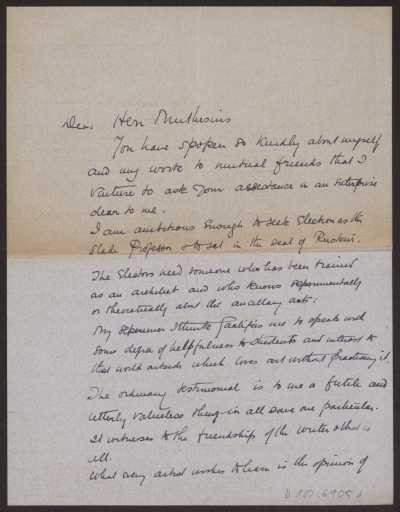 Dear Herr Muthesius
You have spoken so kindly about myself
and my work to mutual friends that I
venture to ask your assistance in an enterprise
dear to me.
I am ambitious enough to seek Election as the
Slade Professor & to sit in the seat of Ruskin.
The Electors need someone who has been trained
as an architect and who knows experimentally
or theoretically about the ancillary arts:
My experience I think qualifies me to speak with
some degree of helpfulness to students and interest to
that world outside which loves art without practising it.
The ordinary testimonial is to me a futile and
utterly valueless thing in all save one particular.
It witnesses to the friendship of the writer & that is
all.
What every artist wishes to have is the opinion of